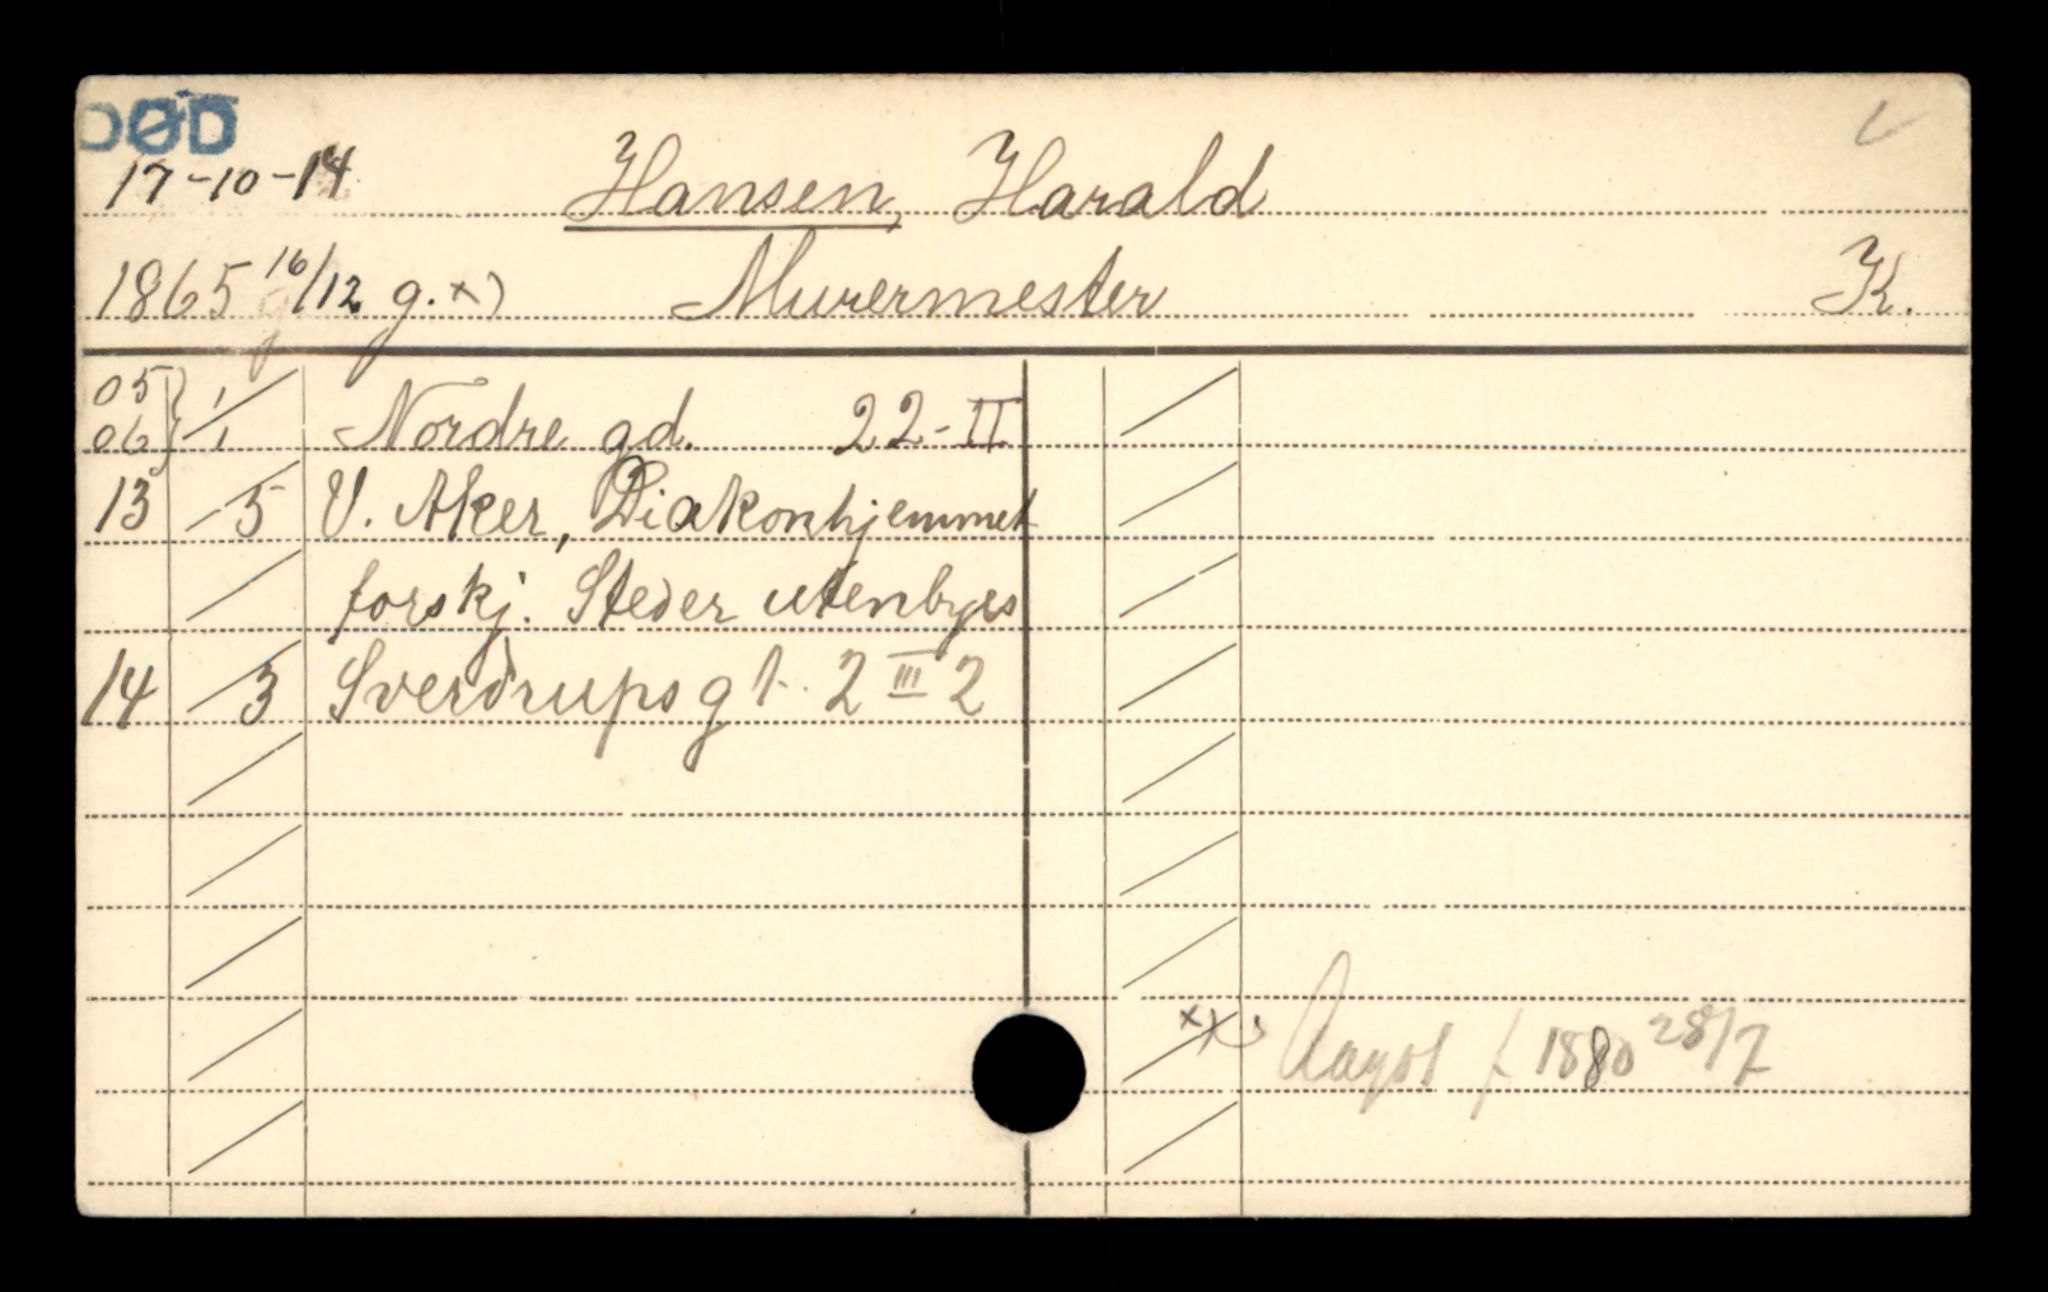 DØD
17-10-14 Hansen, Harald
1865 16/12 g. x) Murermester K.
05 } 1
06 } 1 Nordre gd. 22-II
13 5 V. Aker, Diakonhjemmet
forskj. Steder utenbyes
14 3 Sverdrups gt. 2 III 2
x) f 1880 28/7